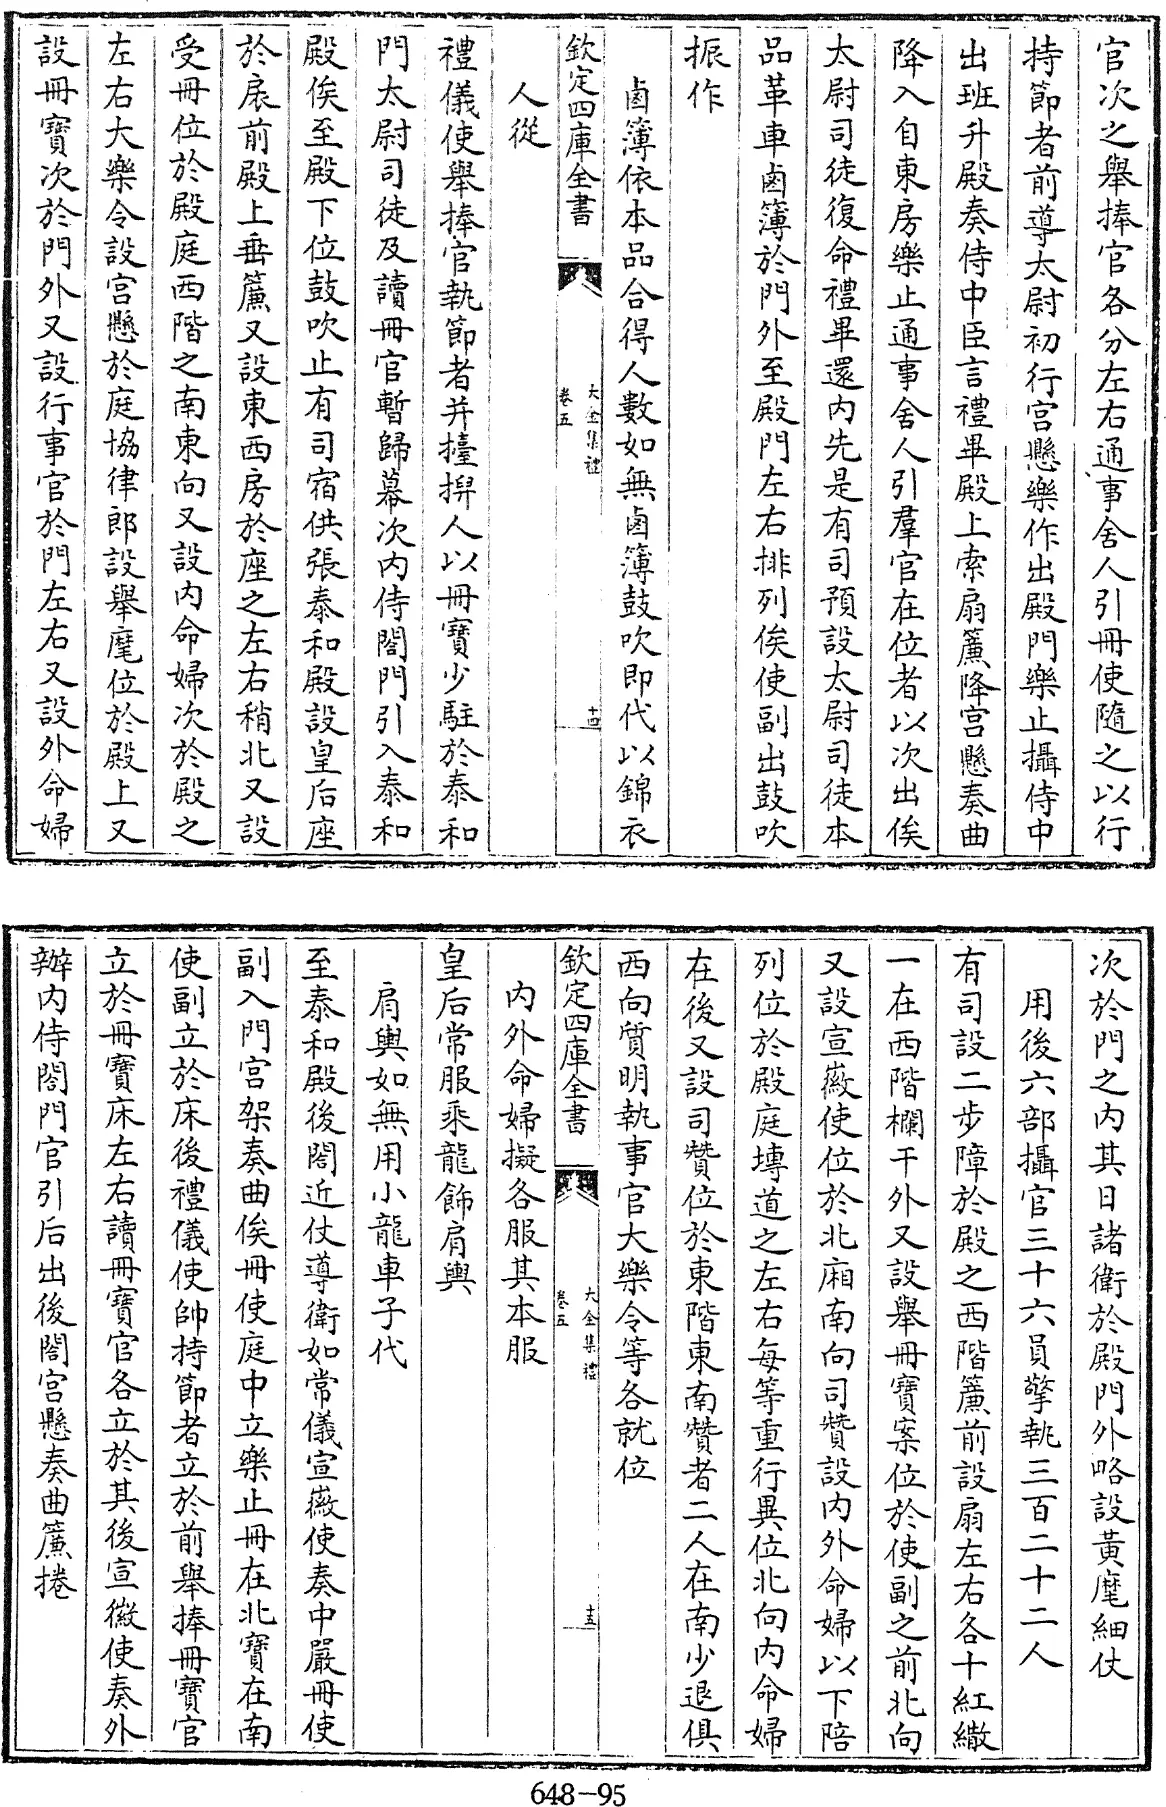 官次之舉捧官各分左右通事舍人引冊使隨之以行
持節者前導太尉初行宫懸樂作出殿門樂止攝侍中
出班升殿奏侍中臣言禮畢殿上索扇簾降宫懸奏曲
降入自東房樂止通事舍人引羣官在位者以次出俟
太尉司徒復命禮畢還内先是有司預設太尉司徒本
品革車鹵簿於門外至殿門左右排列俟使副出鼓吹
振作
鹵簿依本品合得人數如無鹵簿鼓吹即代以錦衣
欽定四庫全書
大金集禮
卷五
十四
人從
禮儀使舉捧官執節者并擡捧人以冊寶少駐於泰和
門太尉司徒及讀冊官暫歸幕次内侍閤門引入泰和
殿俟至殿下位鼓吹止有司宿供張泰和殿設皇后座
於扆前殿上垂簾又設東西房於座之左右稍北又設
受冊位於殿庭西階之南東向又設内命婦次於殿之
左右大樂令設宫懸於庭協律郎設舉麾位於殿上又
設冊寶次於門外又設行事官於門左右又設外命婦
次於門之内其日諸衛於殿門外略設黄麾細仗
用後六部攝官三十六員擎執三百二十二人
有司設二步障於殿之西階簾前設扇左右各十紅繖
一在西階欄干外又設舉冊寶案位於使副之前北向
又設宣徽使位於北廂南向司贊設内外命婦以下陪
列位於殿庭塼道之左右每等重行異位北向内命婦
在後又設司贊位於東階東南贊者二人在南少退俱
西向質明執事官大樂令等各就位
欽定四庫全書
大金集禮
卷五
十五
内外命婦擬各服其本服
皇后常服乘龍飾肩輿
肩輿如無用小龍車子代
至泰和殿後閤近仗導衛如常儀宣徽使奏中嚴冊使
副入門宫架奏曲俟冊使庭中立樂止冊在北寶在南
使副立於床後禮儀使帥持節者立於前舉捧冊寶官
立於冊寶床左右讀冊寶官各立於其後宣徽使奏外
辦内侍閤門官引后出後閤宫懸奏曲簾捲
648-95